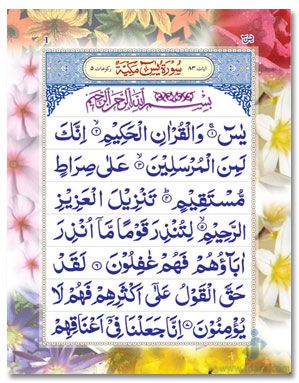 1 يٰسٓ
اٰيات ٨٣ سُوْرَةُ يٰسٓ مَكِّيَّةٌ ركوعات ٥
بِسْمِ اللّٰهِ الرَّحْمٰنِ الرَّحِيْمِ
يٰسٓ ۚ‏﴿۱﴾ وَالْقُرْاٰنِ الْحَكِيْمِ ۙ‏﴿۲﴾ اِنَّكَ
لَمِنَ الْمُرْسَلِيْنَ ۙ‏﴿۳﴾ عَلٰى صِرَاطٍ
مُّسْتَقِيْمٍ ؕ‏﴿۴﴾ تَنْزِيْلَ الْعَزِيْزِ
الرَّحِيْمِ ۙ‏﴿۵﴾ لِتُنْذِرَ قَوْمًا مَّاۤ اُنْذِرَ
اٰبَآؤُهُمْ فَهُمْ غٰفِلُوْنَ ‏﴿۶﴾ لَقَدْ
حَقَّ الْقَوْلُ عَلٰٓى اَكْثَرِهِمْ فَهُمْ لَا
يُؤْمِنُوْنَ ‏﴿۷﴾ اِنَّا جَعَلْنَا فِىْۤ اَعْنَاقِهِمْ